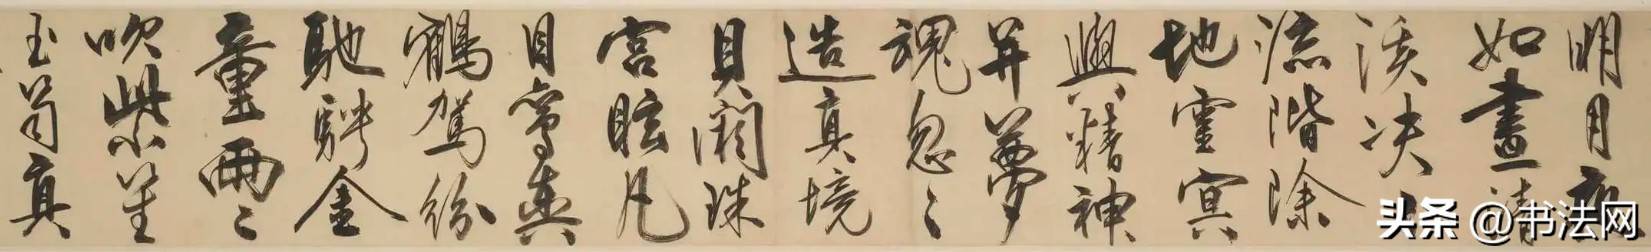 明月夜
如畫清
溪决
流階除
地靈冥
興精神
并夢
魂忽〻
造真境
貝闕珠
宮眩凡
目鸞輿
鶴駕紛
馳騁金
童兩〻
吹紫笙
玉笥真
头条 @书法网